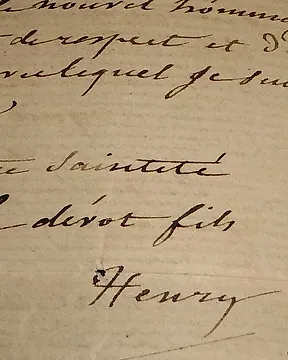 nouvel homma
de respect et d'
lequel Je sui
Sainteté
dévot fils
Henry